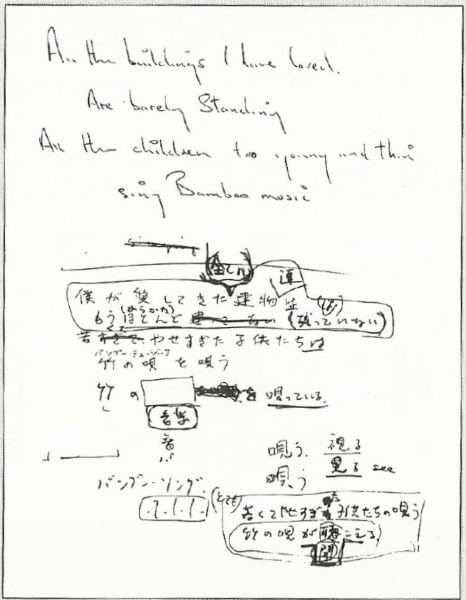 All the buildings I have loved.
Are barely Standing
All the children too young and thin
sing Bamboo music
全ての
達
僕が愛してきた建物は
もうほとんど (残っていない)
若すぎて やせすぎた子供たちは
竹の唄を唄う
竹の を 唄っている.
音楽
音
唄う. 視る
唄う 見る see
バンブー・ソング.
(とても)
若くてやせすぎた子供たちの唄う
竹の唄が聴こえる
聞